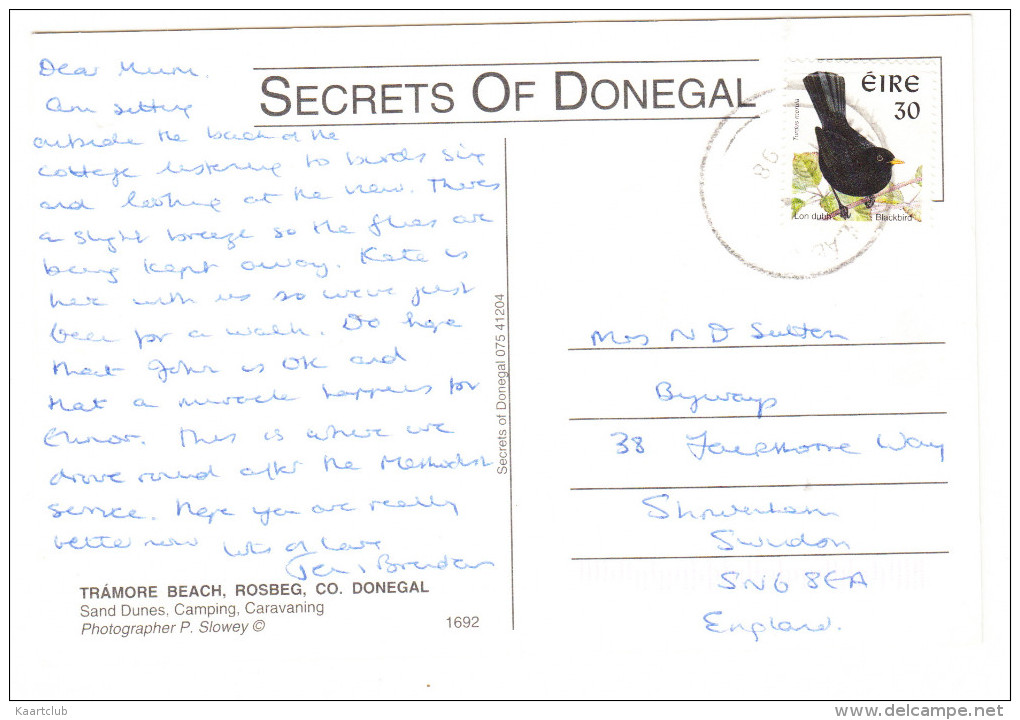 SECRETS OF DONEGAL
Dear Mum.
Am sitting
outside the back of the
cottage listening to birds sing
and looking at the view. Theres
a slight breeze so the flies are
being kept away. Kate is
here with us so weve just
been for a walk. Do hope
that John is OK and
that a miracle happens for
This is where we
drove round after the Methodist
service. Hope you are really
better now Lots of love
Brendan
TRÁMORE BEACH, ROSBEG, CO. DONEGAL
Sand Dunes, Camping, Caravaning
Photographer P. Slowey ©
1692
Secrets of Donegal 075 41204
ÉIRE
30
Turdus merula
Lon dubh Blackbird
86
Mrs N D Sutton
Byways
38 Way
Shrivenham
Swindon
SN6 8EA
England.
© Kaartclub
www.delcampe.net